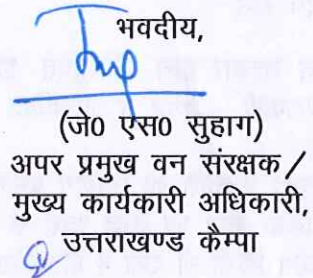 भवदीय,
(जे0 एस0 सुहाग)
अपर प्रमुख वन संरक्षक /
मुख्य कार्यकारी अधिकारी,
उत्तराखण्ड कैम्पा